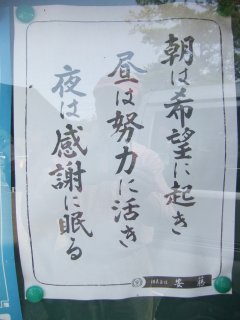 朝は希望に起き
昼は努力に活き
夜は感謝に眠る